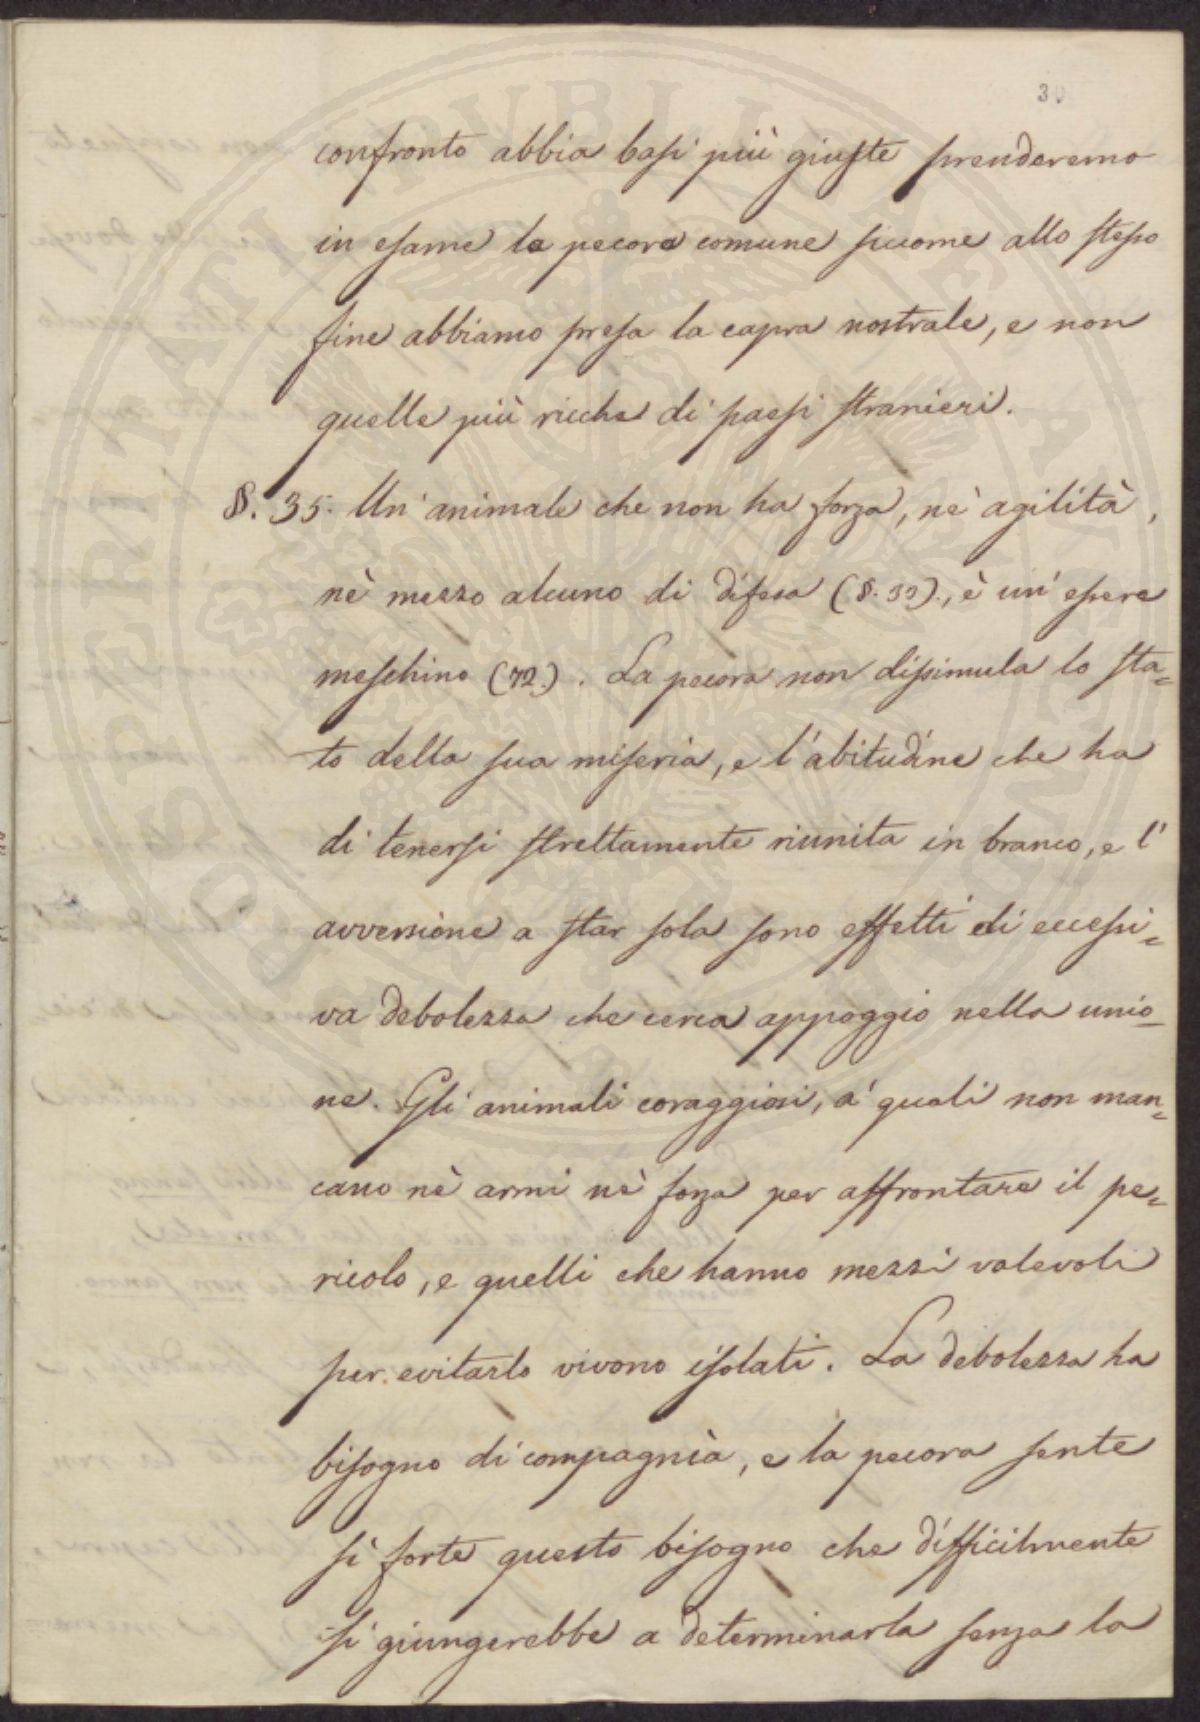 30
confronto abbia basi più giuste prenderemo
in esame la pecora comune siccome allo stesso
fine abbiamo presa la capra nostrale, e non
quelle più ricche di paesi stranieri.
§. 35. Un' animale che non ha forza, nè agilità,
nè mezzo alcuno di difesa (§. 33)., è un' essere
meschino (72.). La pecora non dissimula lo sta=
to della sua miseria, e l'abitudine che ha
di tenersi strettamente riunita in branco, e l'
avversione a star sola sono effetti di eccessi=
va debolezza che cerca appoggio nella unio=
ne. Gli animali coraggiosi, a' quali non man=
cano nè armi nè forza per affrontare il pe=
ricolo, e quelli che hanno mezzi valevoli
per evitarlo vivono isolati. La debolezza ha
bisogno di compagnìa, e la pecora sente
sì forte questo bisogno che difficilmente
si giungerebbe a determinarla senza la